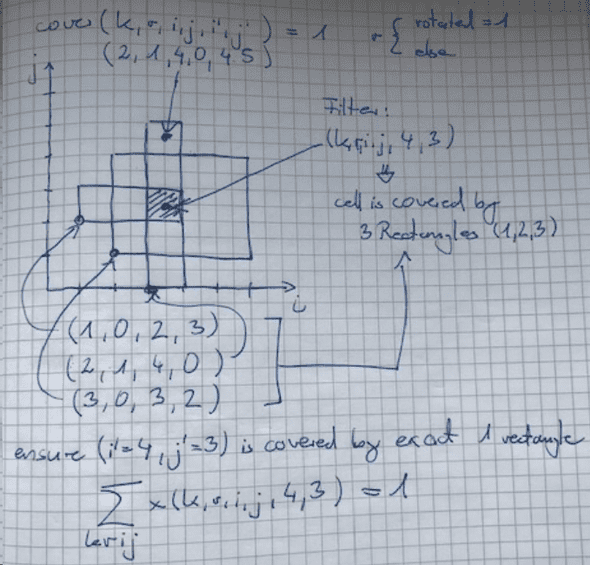 cover(k, r, i, j, i', j') = 1
r { rotated = 1
else
(2, 1, 4, 0, 4 5)
j
Filter:
(k,r,i,j, 4, 3)
cell is covered by
3 Rectangles (1,2,3)
i
(1, 0, 2, 3)
(2, 1, 4, 0)
(3, 0, 3, 2)
ensure (i'=4, j'=3) is covered by exact 1 rectangle
∑ x(k, r, i, j, 4, 3) = 1
k r i j